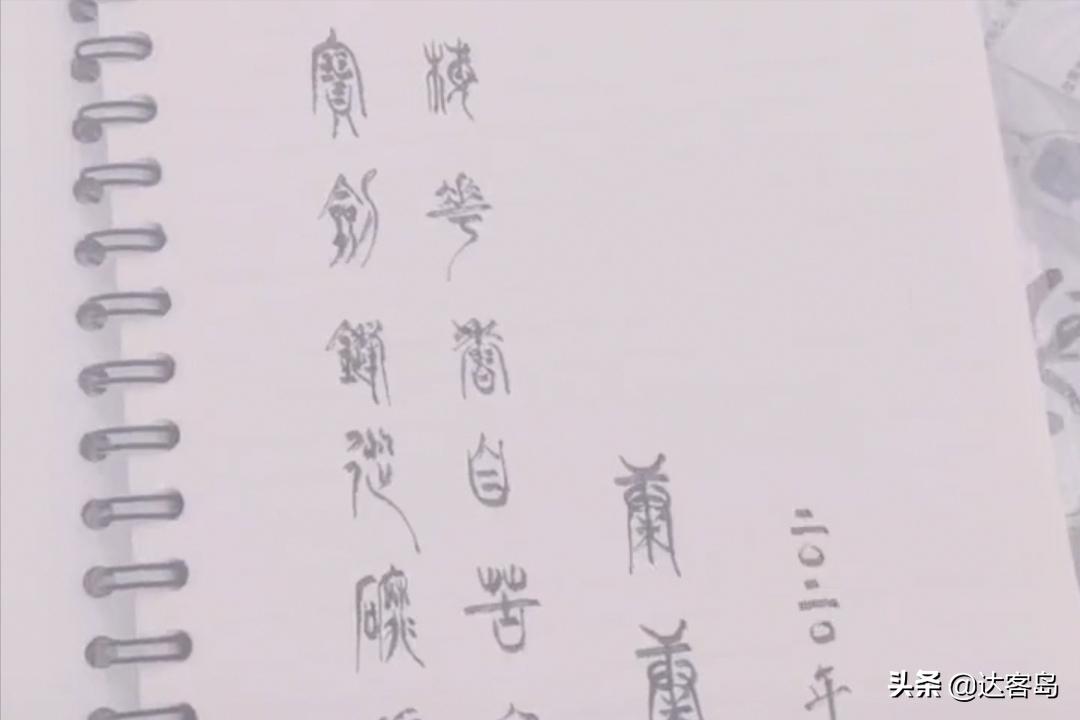 寶劍鋒從磨
梅花香自苦
二0二0年
头条 @达客岛